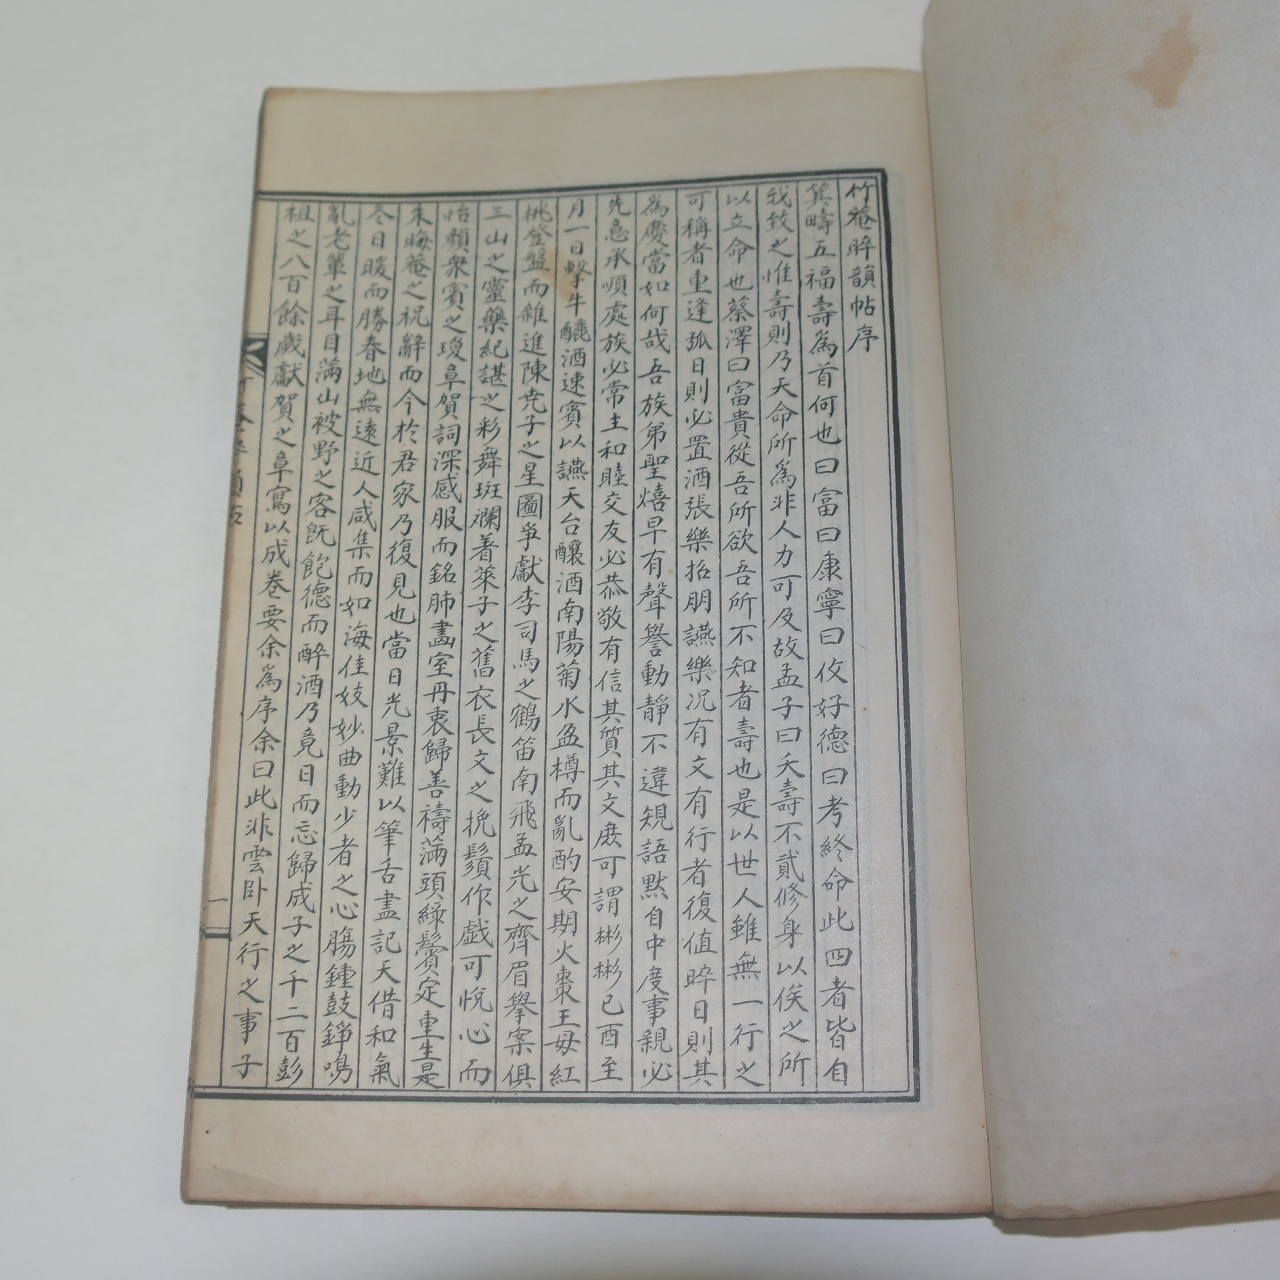 竹菴晬韻帖序
箕疇五福壽爲首何也曰富曰康寧曰攸好德曰考終命此四者皆自
我致之惟壽則乃天命所爲非人力可及故孟子曰夭壽不貳修身以俟之所
以立命也蔡澤曰富貴從吾所欲吾所不知者壽也是以世人雖無一行之
可稱者重逢弧日則必置酒張樂招朋讌樂况有文有行者復值晬日則其
爲慶當如何哉吾族弟聖熺早有聲譽動靜不違規語默自中度事親必
先意承順處族必常主和睦交友必恭敬有信其質其文庶可謂彬彬已酉至
月一日擊牛釃酒速賓以讌天台釀酒南陽菊水盈樽而亂酌安期火棗王母紅
桃登盤而雜進陳尭子之星圖爭獻李司馬之鶴笛南飛孟光之齊眉擧案俱
三山之靈藥紀諶之彩舞斑斕着萊子之舊衣長文之挽鬚作戯可悅心而
怡顏衆賓之瓊阜賀詞深感服而銘肺畵室丹衷歸善禱滿頭綠鬢定重生是
朱晦菴之祝辭而今於君家乃復見也當日光景難以筆舌盡記天借和氣
冬日暖而勝春地無遠近人咸集而如海佳妓妙曲動少者之心膓鍾鼓錚鳴
亂老軰之耳目滿山被野之客旣飽德而醉酒乃竟日而忘歸成子之千二百彭
祖之八百餘歲獻賀之章寫以成卷要余爲序余曰此非雲卧天行之事子
竹菴晬韻帖
一